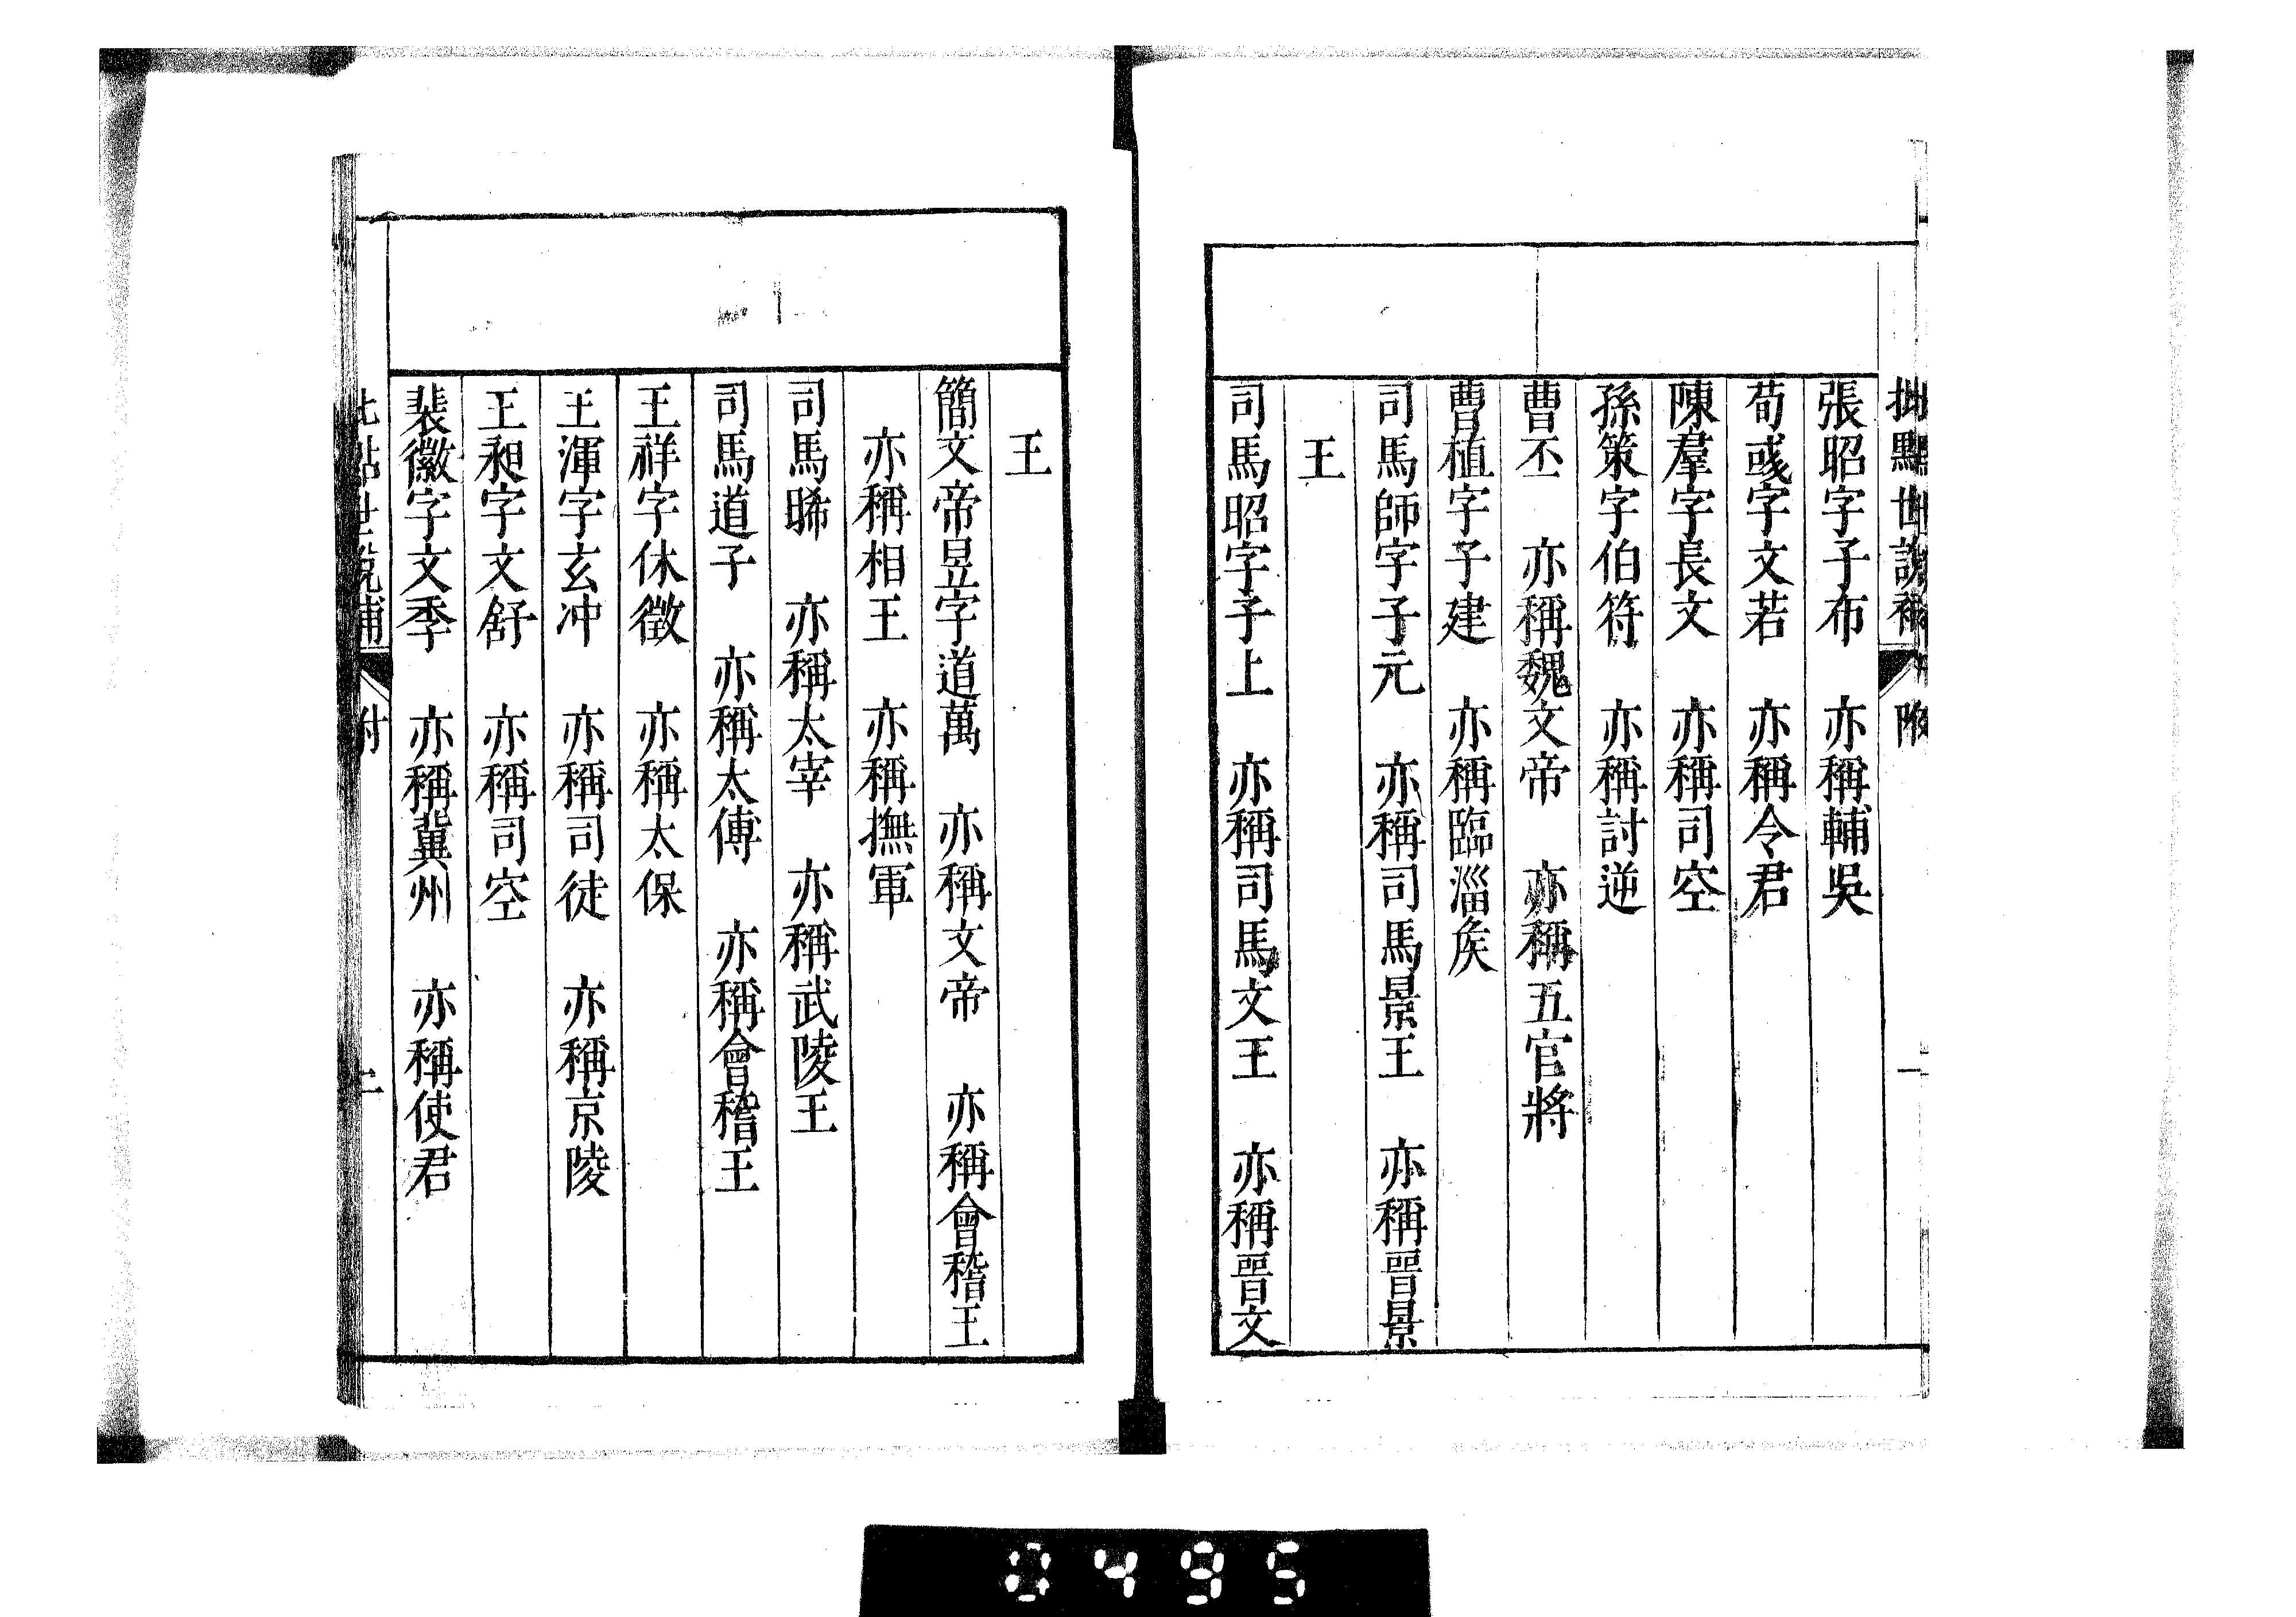 批點世說補 附 一
張昭字子布 亦稱輔吳
荀彧字文若 亦稱令君
陳羣字長文 亦稱司空
孫策字伯符 亦稱討逆
曹丕 亦稱魏文帝 亦稱五官將
曹植字子建 亦稱臨淄矦
司馬師字子元 亦稱司馬景王 亦稱晉景
王
司馬昭字子上 亦稱司馬文王 亦稱晉文
王
簡文帝昱字道萬 亦稱文帝 亦稱會稽王
亦稱相王 亦稱撫軍
司馬晞 亦稱太宰 亦稱武陵王
司馬道子 亦稱太傅 亦稱會稽王
王祥字休徵 亦稱太保
王渾字玄冲 亦稱司徒 亦稱京陵
王昶字文舒 亦稱司空
裴徽字文季 亦稱冀州 亦稱使君
批點世說補 附 二
0495